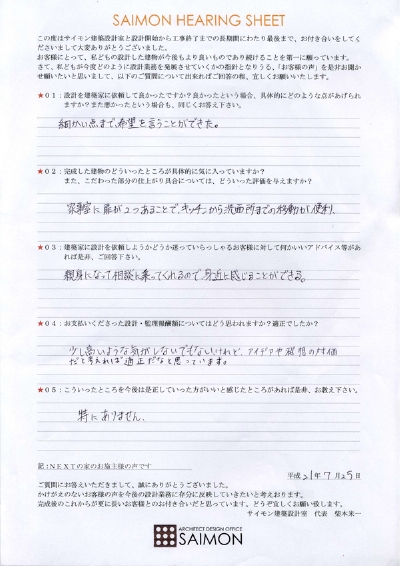 SAIMON HEARING SHEET
この度はサイモン建築設計室と設計開始から工事終了までの長期間にわたり最後まで、お付き合いをしてくださいまして大変ありがとうございました。
お客様にとって、私どもの設計した建物が今後もより良いものであり続けることを第一に願っています。
さて、私どもが今度どのように設計業務を発展させていくかの指針となりうる、「お客様の声」を是非お聞かせ願いたいと思いまして、以下のご質問について出来ればご回答の程、宜しくお願いいたします。
★01：設計を建築家に依頼して良かったですか？良かったという場合、具体的にどのような点があげられますか？また悪かったという場合も、同じくお答え下さい。
細かい点まで、希望を言うことができた。
★02：完成した建物のどういったところが具体的に気に入っていますか？
また、こだわった部分の仕上がり具合については、どういった評価を与えますか？
家事室に扉が2つあることで、キッチンから洗面所までの移動が便利
★03：建築家に設計を依頼しようかどうか迷っていらっしゃるお客様に対して何かいいアドバイス等があれば是非、ご回答下さい。
親身になって相談に乗ってくれるので、身近に感じることができる。
★04：お支払いくださった設計・監理報酬額についてはどう思われますか？適正でしたか？
少し高いような気がしないでもないけれど、アイデアや発想の対価
だと考えれば適正だなと思っています。
★05：こういったところを今後は是正していった方がいいと感じたところがあれば是非、お教え下さい。
特にありません。
記：NEXTの家のお施主様の声です
平成21年7月25日
ご質問にお答えいただきまして、誠にありがとうございました。
かけがえのないお客様の声を今後の設計業務に存分に反映していきたいと考えております。
完成後のこれからが更に長いお客様とのお付き合いだと思っています。どうぞ宜しくお願い致します。
サイモン建築設計室 代表 柴木米一
ARCHITECT DESIGN OFFICE
SAIMON